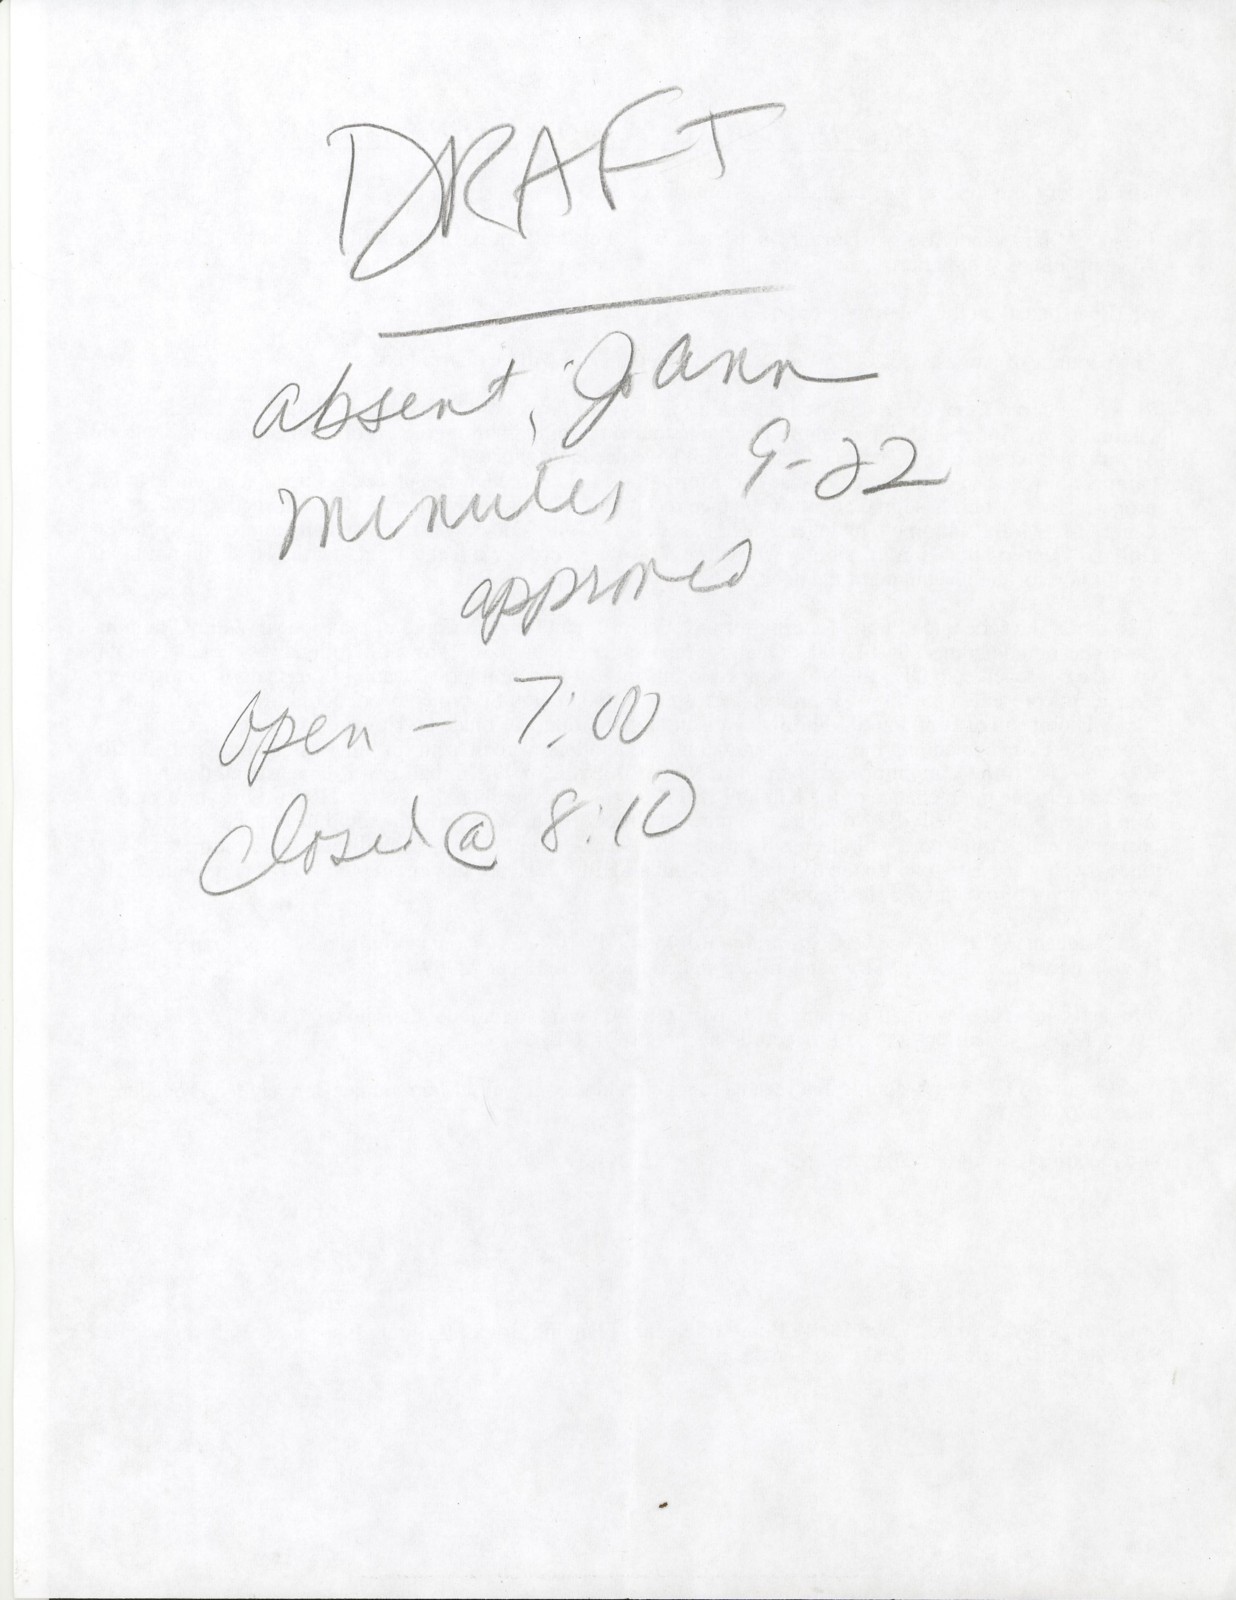 DRAFT
absent, Joann
minutes 9-22
approved
open - 7:00
Closed @ 8:10